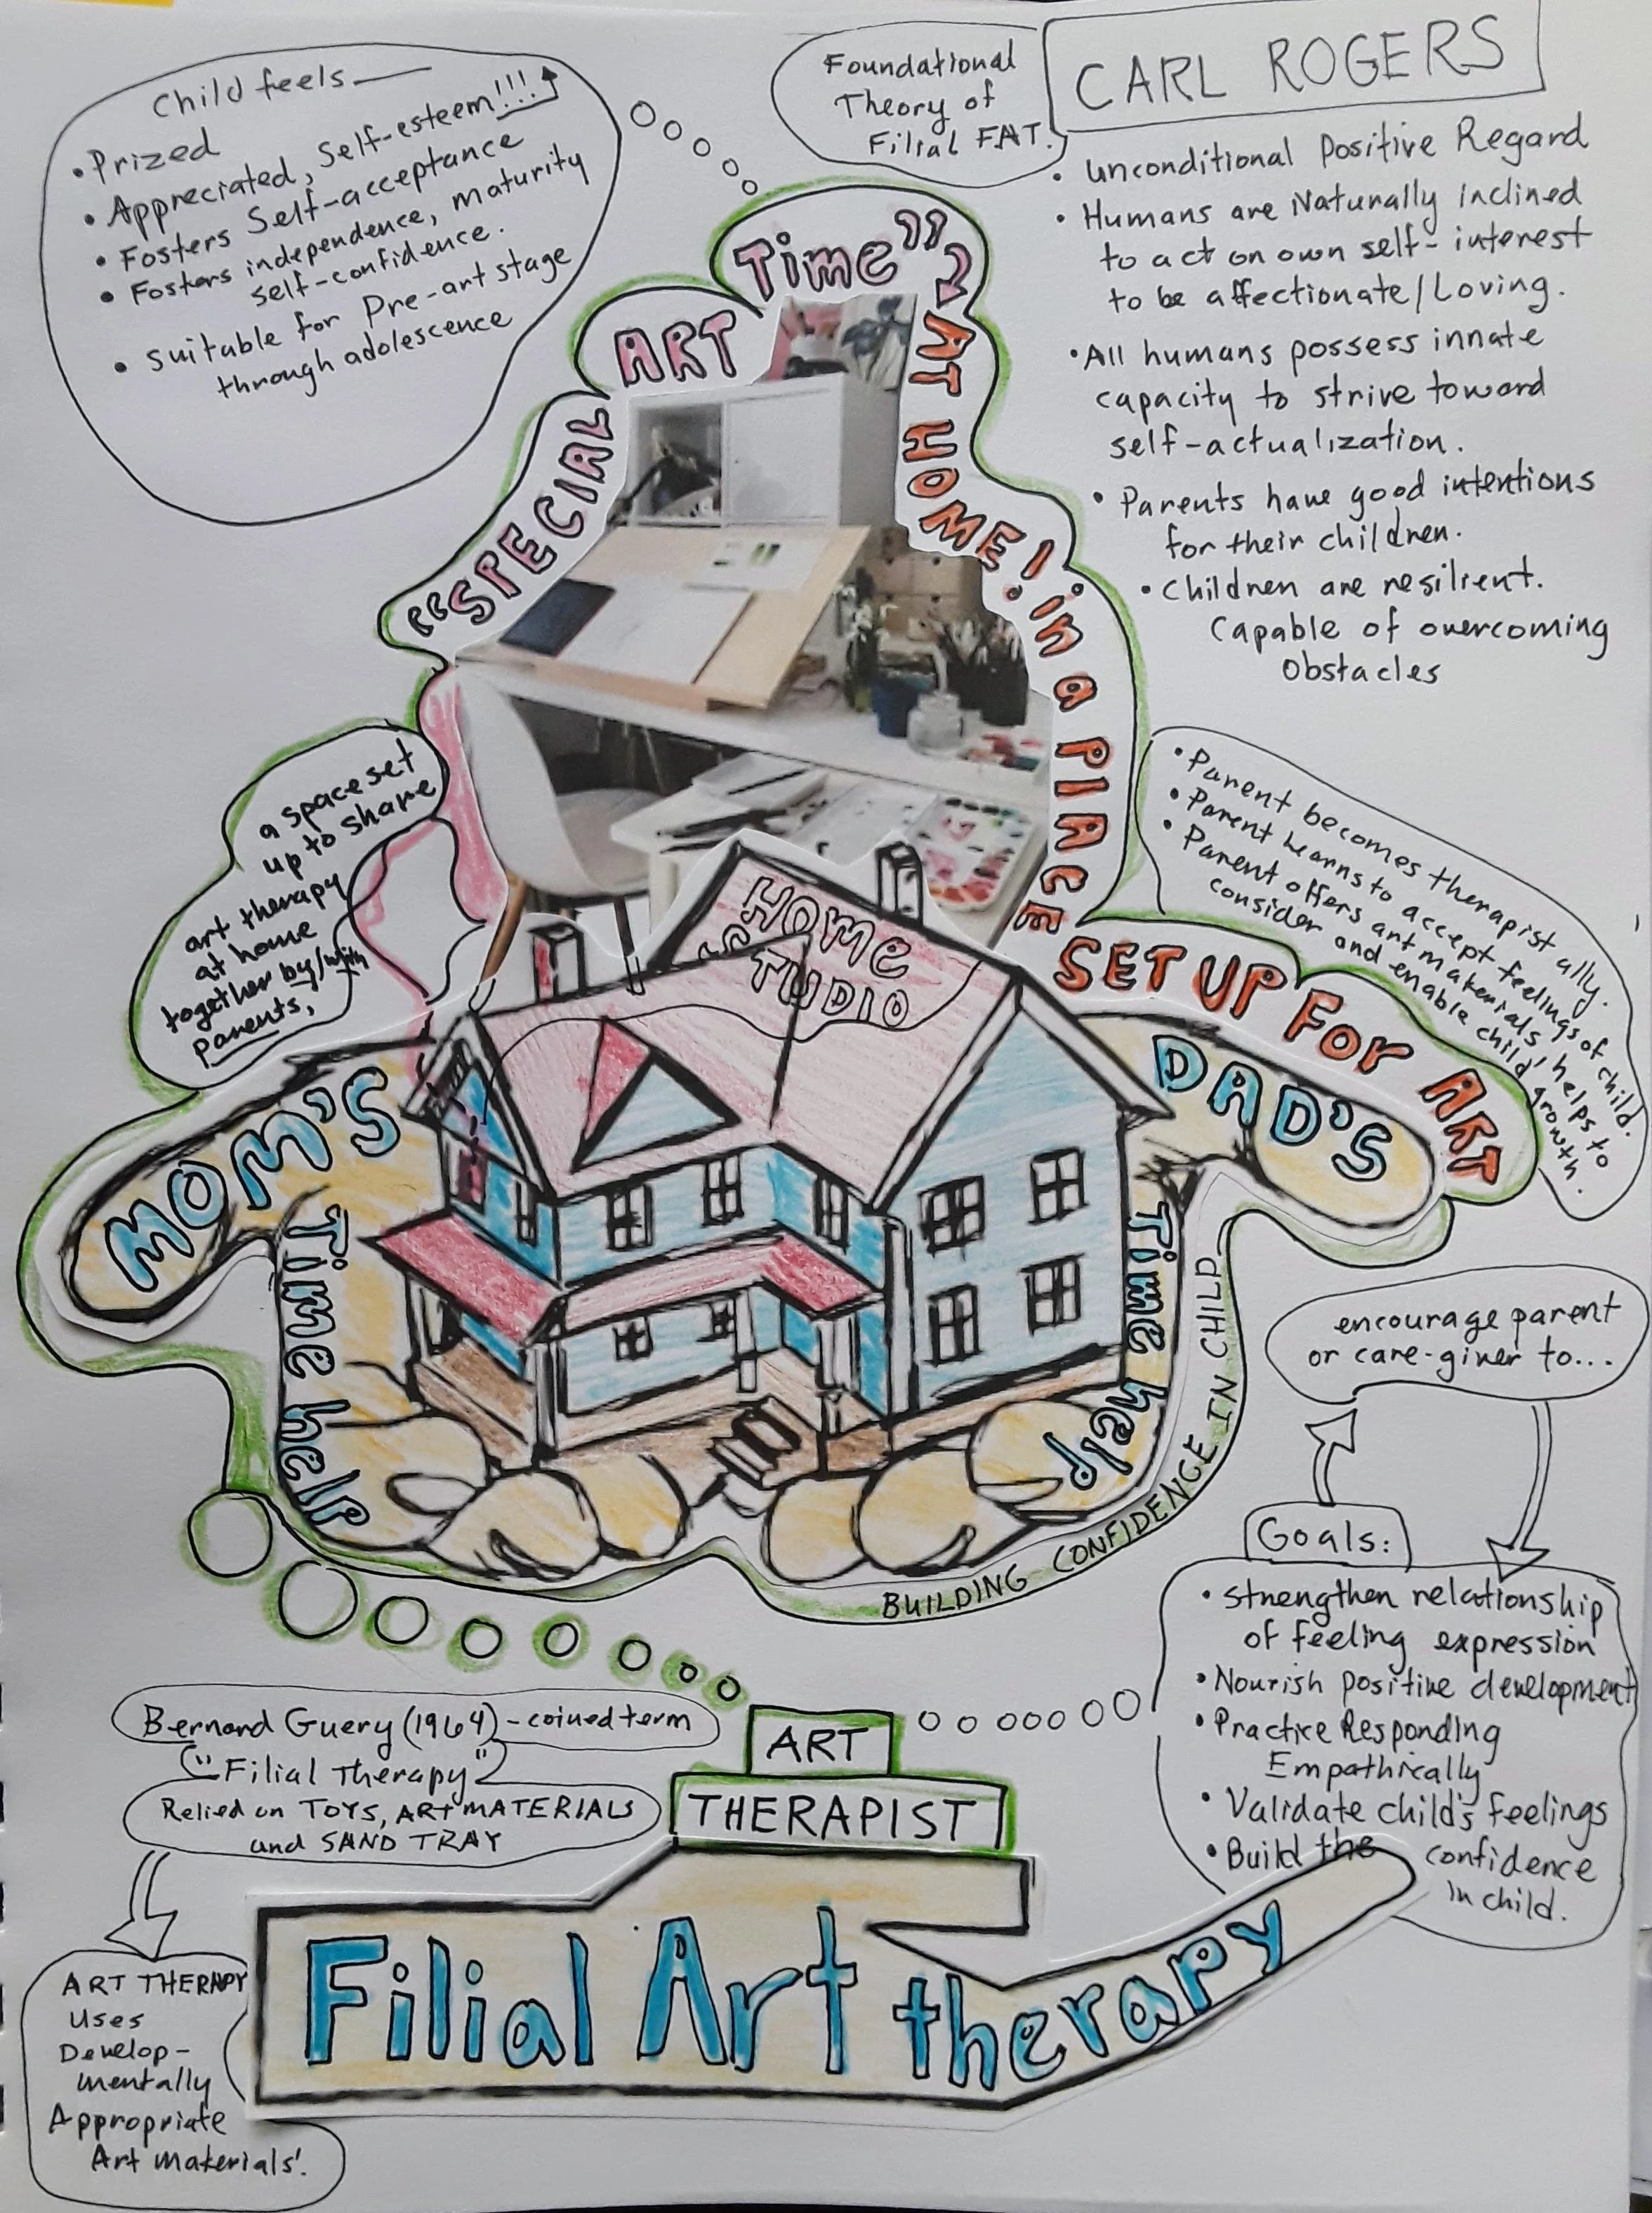 Child feels
• Prized
• Appreciated, Self-esteem!!!
• Fosters Self-acceptance
• Fosters independence, maturity
self-confidence.
• suitable for Pre-art stage
through adolescence
Foundational
Theory of
Filial FAT.
CARL ROGERS
• Unconditional Positive Regard
• Humans are Naturally Inclined
to act on own self-interest
to be affectionate/Loving.
• All humans possess innate
capacity to strive toward
self-actualization.
• Parents have good intentions
for their children.
• Children are resilient.
Capable of overcoming
Obstacles
"SPECIAL ART Time"
AT HOME! in a PlACE SET UP For ART
a space set
up to share
art therapy
at home
together by/with
parents,
• Parent becomes therapist ally.
• Parent learns to accept feelings of child.
• Parent offers art materials, helps to
consider and enable child growth.
HOME
STUDIO
MOM'S
Time help
DAD'S
Time help
BUILDING CONFIDENCE IN CHILD
encourage parent
or care-giver to...
Goals:
• strengthen relationship
of feeling expression
• Nourish positive development
• Practice Responding
Empathically
• Validate child's feelings
• Build the confidence
in child.
Bernard Guery (1964) - coined term
"Filial Therapy"
Relied on TOYS, ART MATERIALS
and SAND TRAY
ART
THERAPIST
Filial Art therapy
ART THERAPY
Uses
Develop-
mentally
Appropriate
Art materials!